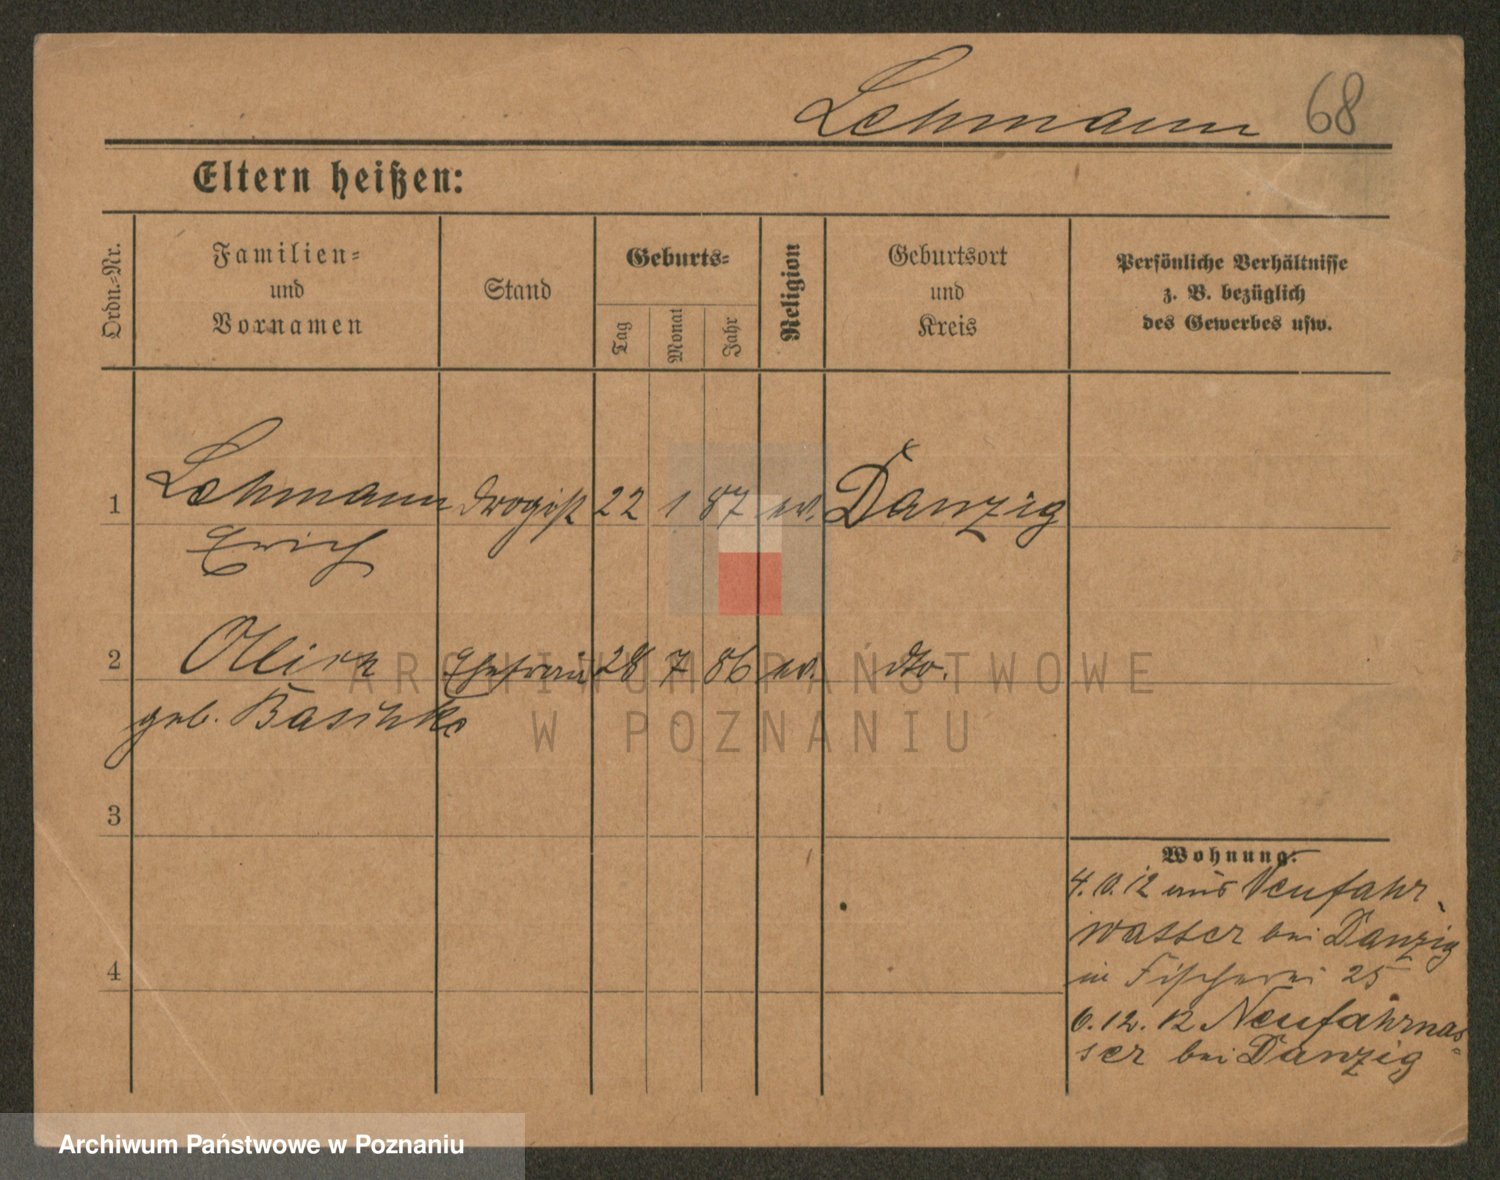 Lehmann 68
Eltern heißen:
Ordn.-Nr. Familien- und Vornamen Stand Geburts- Tag Monat Jahr Religion Geburtsort und Kreis Persönliche Verhältnisse z. B. bezüglich des Gewerbes usw.
1 Lehmann Drogist 22 1 87 ev. Danzig
Erich
2 Ehefrau 28 7 86 ev. dto.
geb.
3
Wohnung:
4. 10. 12 aus Neufahr-
wasser bei Danzig
4
in Fischerei 25
6. 12. 12 Neufahrwas-
ser bei Danzig
ARCHIWUM PAŃSTWOWE
W POZNANIU
Archiwum Państwowe w Poznaniu